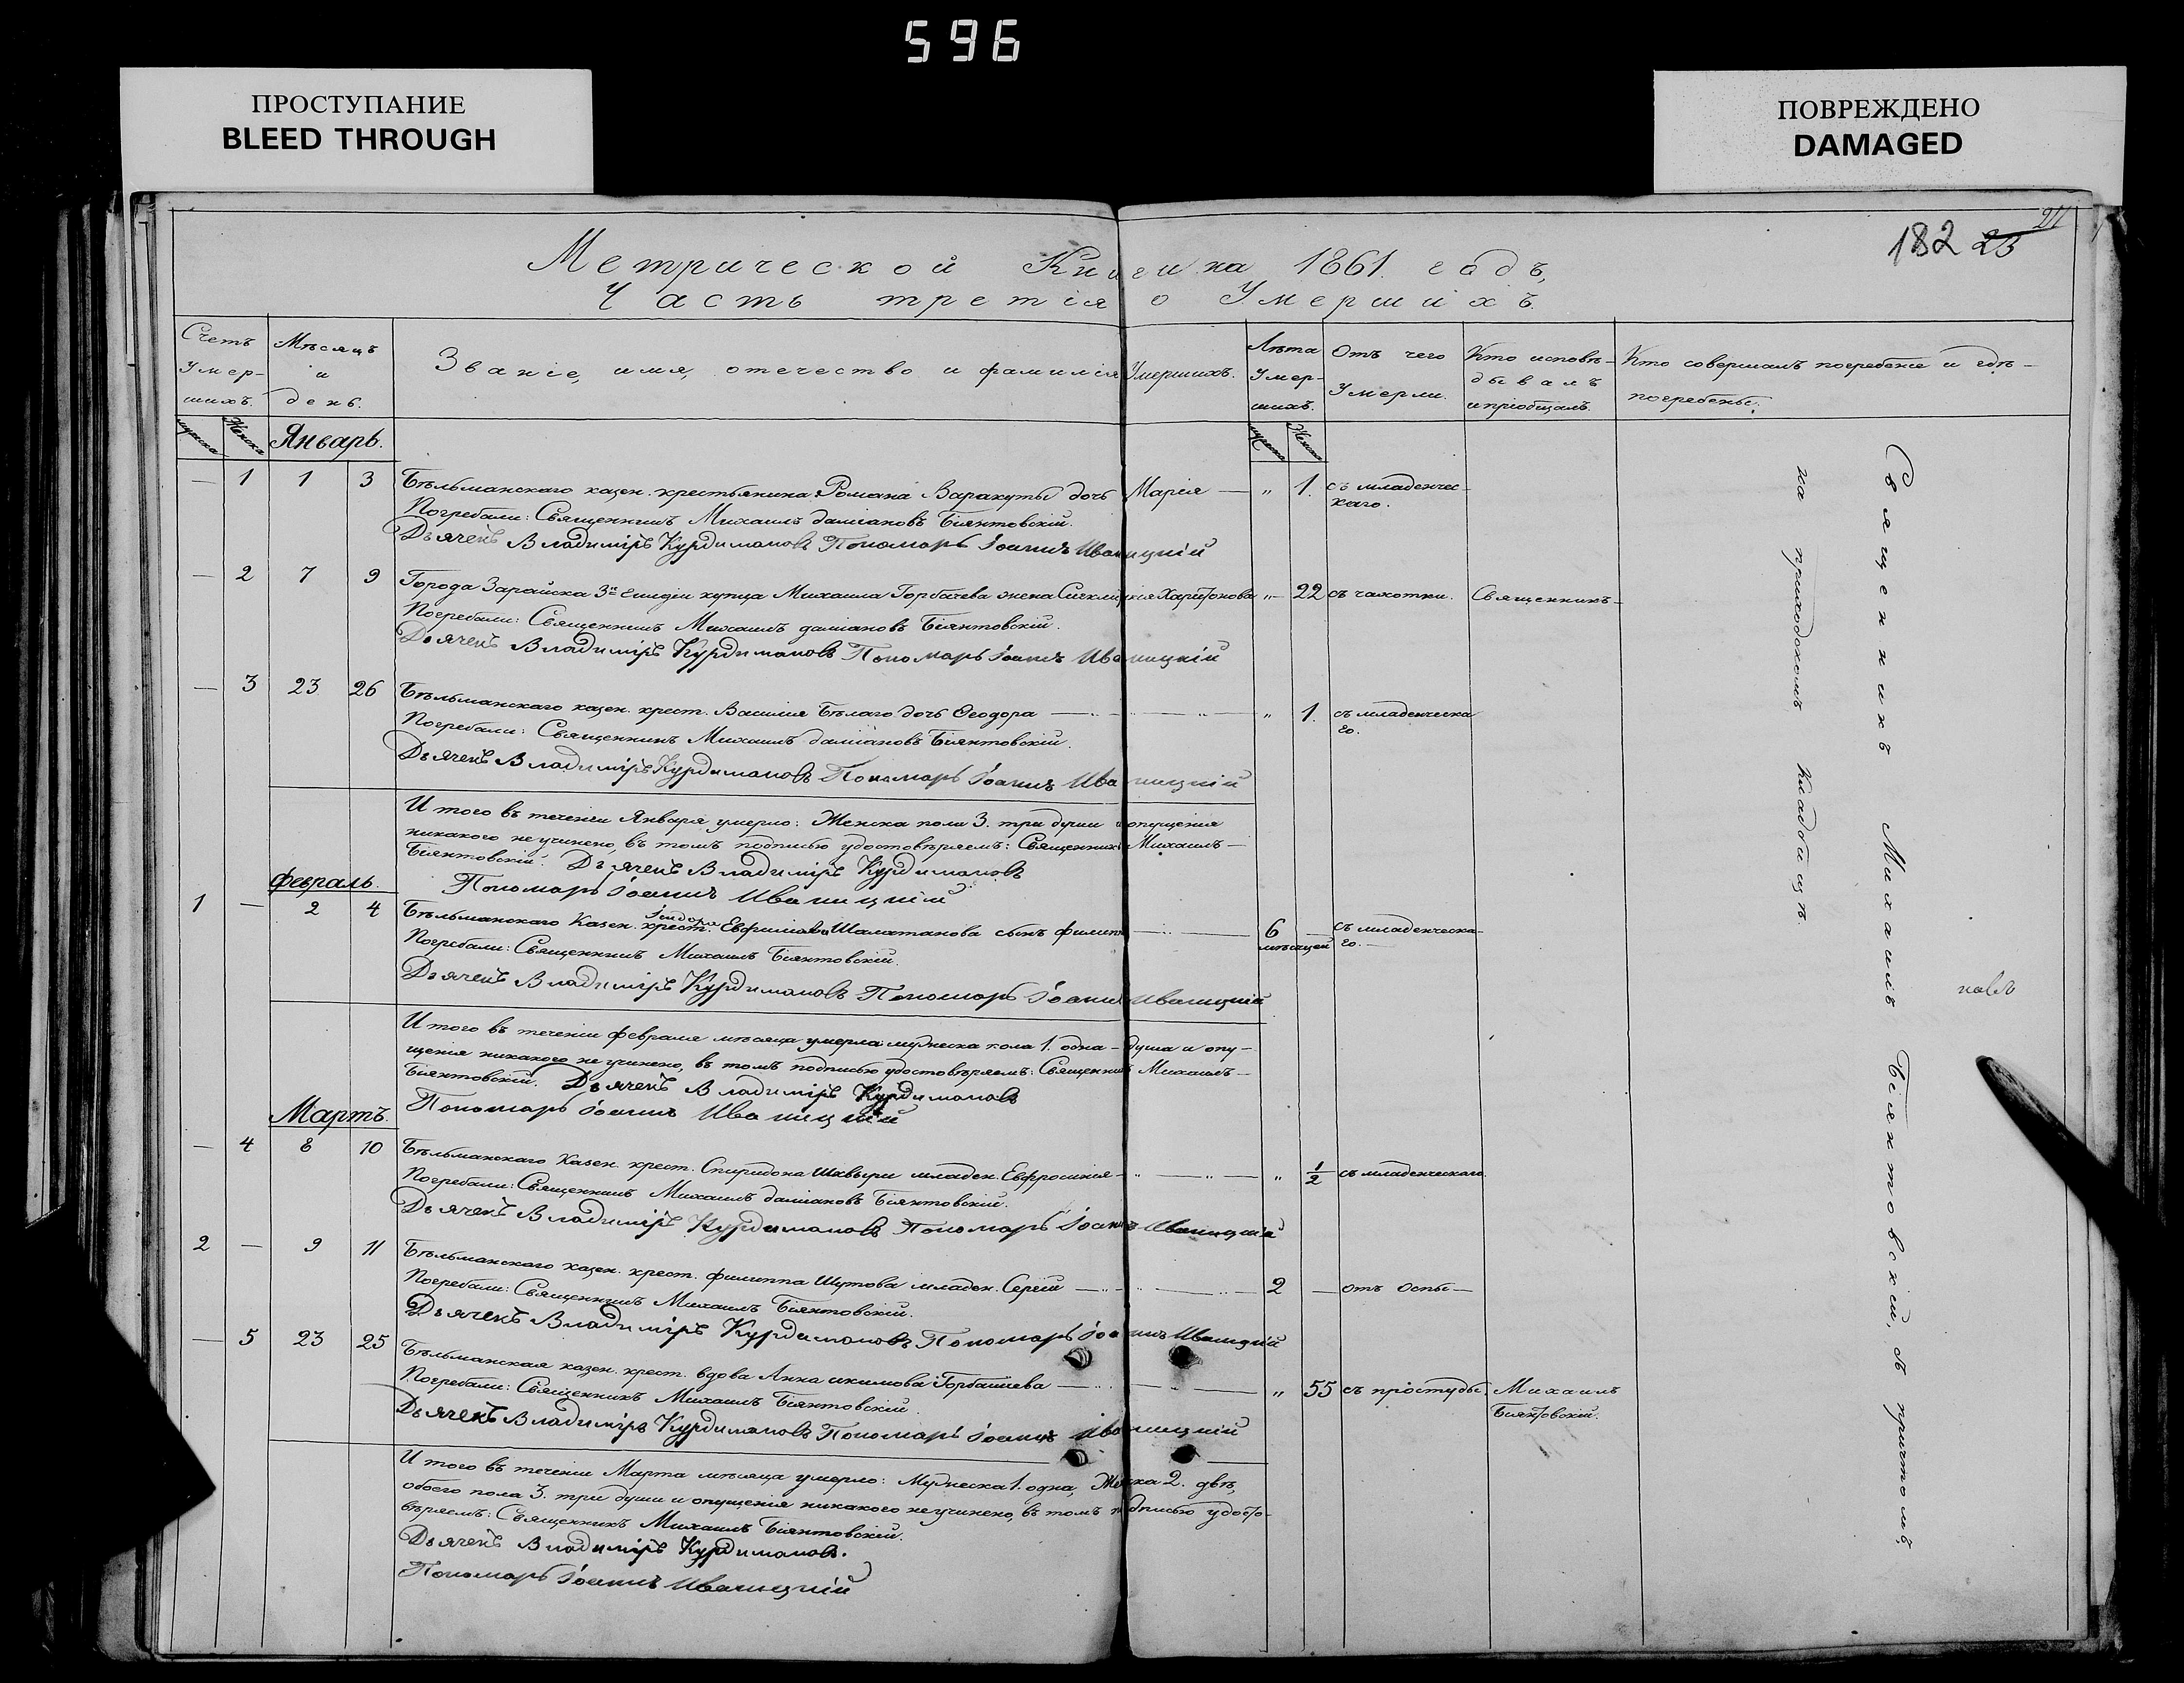 596
ПРОСТУПАНИЕ
BLEED THROUGH
ПОВРЕЖДЕНО
DAMAGED
182 23 21
Метрической Книги на 1861. годъ,
Часть третія о Умершихъ.
Счетъ Умер-шихъ.
Мѣсяцъ и день.
Званіе, имя, отечество и фамилія Умершихъ.
Лѣта Умер-шихъ.
Отъ чего Умерли.
Кто исповѣ-дывалъ и пріобщалъ.
Кто совершалъ погребеніе и гдѣ-погребены.
мужска Женска Январь. мужска Женска
— 1 1 3 Бѣльманскаго казен. крестьянина Романа Варакуты дочь Марія — „ 1. съ младенчес-
каго.
Погребали: Священникъ Михаилъ даміановъ Біянтовскій.
Дьячекъ Владиміръ Курдимановъ Пономарь Іоаннъ Иваницкій
— 2 7 9 Города Зарайска 3й Гилдіи купца Михаила Горбачева жена Харитонова „— 22 съ чахотки. Священникъ-
Погребали: Священникъ Михаилъ даміановъ Біянтовскій.
Дьячекъ Владиміръ Курдимановъ Пономарь Іоаннъ Иваницкій
— 3 23 26 Бѣльманскаго казен. крест. Василія Бѣлаго дочь Ѳеодора — „ 1. съ младенческа
го.
Погребали: Священникъ Михаилъ даміановъ Біянтовскій.
Дьячекъ Владиміръ Курдимановъ Пономарь Іоаннъ Иваницкій
Итого въ теченіи Января умерло: Женска пола 3. три души и опущенія
никакого не учинено, въ томъ подписью удостовѣряемъ: Священникъ Михаилъ—
Біянтовскій. Дьячекъ Владиміръ Курдимановъ
Пономарь Іоаннъ Иваницкій
Февраль.
1 — 2 4 Бѣльманскаго Казен. крест. Сидора Евфиміева Шаматанова сынъ Филипъ — 6 мѣсяцей — съ младенческа-
го.—
Погребали: Священникъ Михаилъ Біянтовскій.
Дьячекъ Владиміръ Курдимановъ Пономарь Іоаннъ Иваницкій
Итого въ теченіи Февраля мѣсяца умерла мужеска пола 1. одна—душа и опу-
щенія никакого не учинено, въ томъ подписью удостовѣряемъ: Священникъ Михаилъ—
Біянтовскій. Дьячекъ Владиміръ Курдимановъ
Пономарь Іоаннъ Иваницкій
Мартъ.
— 4 8 10 Бѣльманскаго Казен. крест. Спиридона Шавыри младен. Евфросинія — „ 1/2 съ младенческаго.
Погребали: Священникъ Михаилъ даміановъ Біянтовскій.
Дьячекъ Владиміръ Курдимановъ Пономарь Іоаннъ Иваницкій
2 — 9 11 Бѣльманскаго казен. крест. Филиппа Шутова младен. Сергій — 2 — отъ Оспы—
Погребали: Священникъ Михаилъ Біянтовскій.
Дьячекъ Владиміръ Курдимановъ Пономарь Іоаннъ Иваницкій
— 5 23 25 Бѣльманская казен. крест. вдова Анна якимова — „ 55 съ простуды. Михаилъ
Біянтовскій.
Погребали: Священникъ Михаилъ Біянтовскій.
Дьячекъ Владиміръ Курдимановъ Пономарь Іоаннъ Иваницкій
Итого въ теченіи Марта мѣсяца умерло: Мужеска 1. одна, Женска 2. двѣ,
обоего пола 3. три души и опущенія никакого не учинено, въ томъ подписью удосто-
вѣряемъ: Священникъ Михаилъ Біянтовскій.
Дьячекъ Владиміръ Курдимановъ.
Пономарь Іоаннъ Иваницкій
Священникъ Михаилъ Біянтовскій, съ причтомъ
на приходскомъ Кладбищѣ.